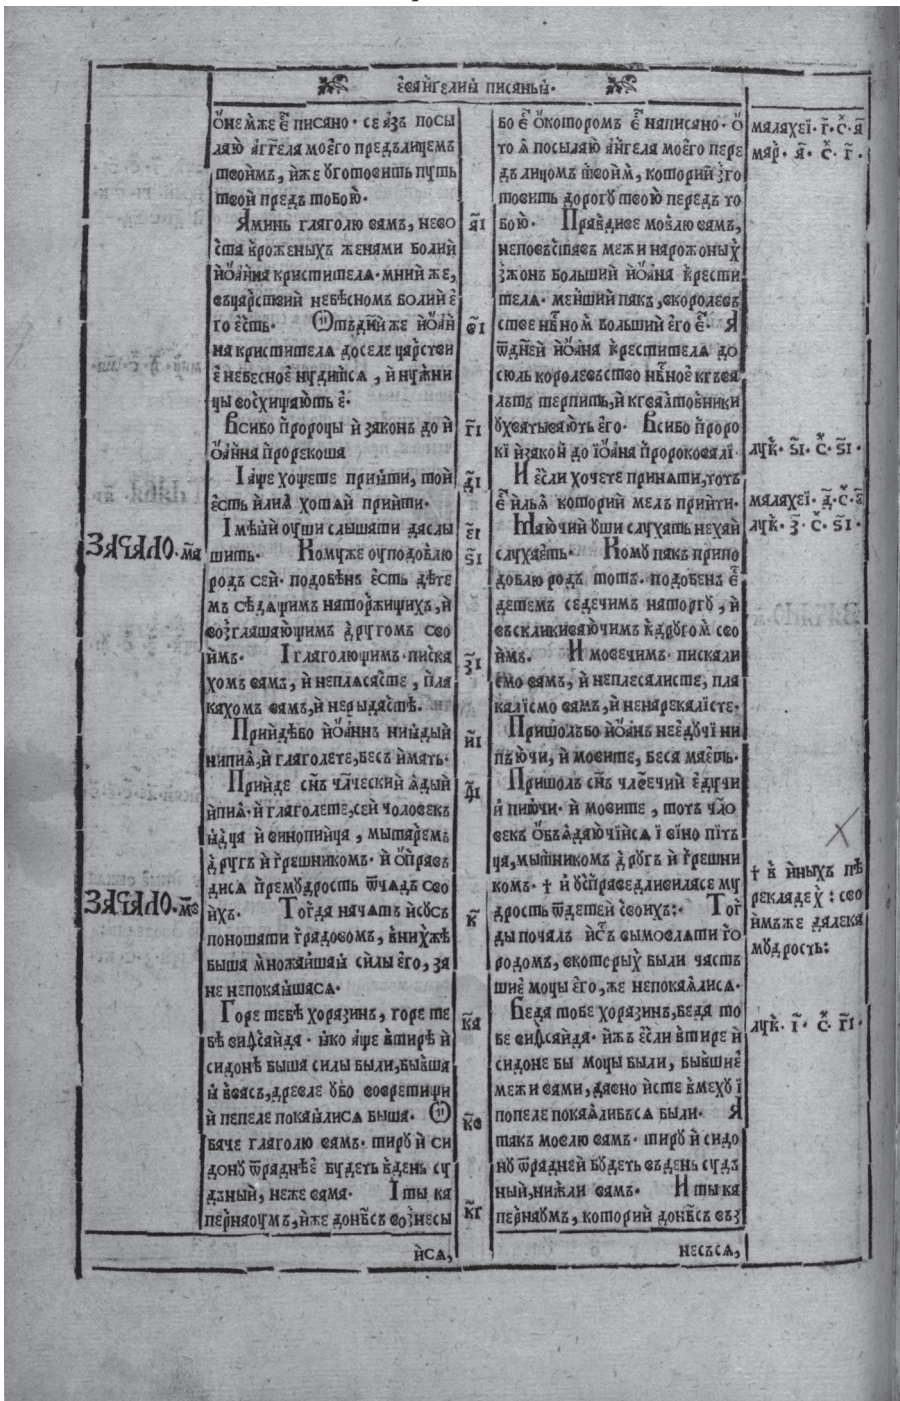 єѵаⷩ҇гелиѝ писаныѝ·
ѻнемже єⷭ҇ писано· се азъ посы
лаю аггела моєго предълицемъ
твоимъ, иже уготовить путь
твой предъ тобою·
Аминь глаголю вамъ, нево
ста вроженыхъ женами болий
йоанна кристителѧ· мний же,
въцарствий небѣсномъ болий є
го єсть· Ѿтъдний же йоан
на кристителѧ доселе царстви
є небесноє нудитсѧ, и нужни
цы восхищають є·
Всибо пророцы и законъ до и
оанна прорекоша
І аще хощете приѧти, той
єсть илиѧ хотѧй прийти·
І мѣѧй оуши слышати даслы
шить· Комуже оуподоблю
родъ сей· подобѣнъ єсть дѣте
мъ сѣдѧщимъ наторжищихъ, и
возглашающимъ другомъ сво
имъ· І глаголющимъ· писка
хомъ вамъ, и неплѧсасте, пла
кахомъ вамъ, и нерыдасте·
Прийдѣбо йоаннъ ниѧдый
нипиѧ, и глаголете, бесъ имать·
Прийде сн҃ъ чл҃ческий ѧдый
ипиѧ· и глаголете, сей чоловекъ
ѧдца и винопийца, мытаремъ
другъ и грешникомъ· и ѻправъ
дисѧ премудрость ѿчадъ сво
ихъ· Тогда начатъ исусъ
поношати градовомъ, внихже
быша множайшаѧ силы его, за
не непокаѧшасѧ·
Горе тебѣ хоразинъ, горе те
бѣ виѳсайда· ѧко аще втирѣ и
сидонѣ быша силы были, бывша
ѧ ввасъ, древле убо вовретищи
и пепеле покаѧлисѧ быша· Ѿ
баче глаголю вамъ· тиру и си
дону ѿраднѣє будеть вдень су
дъный, неже вамъ· І ты ка
пернаоумъ, иже донб҃съ вознесы
исѧ,
а҃і
в҃і
г҃і
д҃і
є҃і
ѕ҃і
з҃і
и҃і
ѳ҃і
к҃
к҃а
к҃в
к҃г
бо єⷭ҇ ѻкоторомъ єⷭ҇ написано· ѻ
то ѧ посылаю ангела моєго пере
дъ лицомъ твоим, которий зго
товить дорогу твою передъ то
бою· Правдиве мовлю вамъ,
неповъставъ межи нарожоных
зжонъ больший йоана крести
телѧ· менший пакъ, вкоролевъ
стве нбⷭ҇ном больший его єⷭ҇· Я
ѿдней йоана крестителѧ до
сюль королевъство нбⷭ҇ноє кгва
лътъ терпить, и кгвалтовники
ухватывають его· Всибо проро
кі изакон до іоана пророковалі·
И если хочете принѧти, тотъ
єⷭ҇ илья которий мелъ прийти·
Маючий уши слухать нехай
слухаєть· Кому пакъ припо
доблю родъ тотъ· подобенъ єⷭ҇
детемъ седечимъ наторгу, и
въскликиваючимъ кдругом сво
имъ· И мовечимъ· пискали
смо вамъ, и неплесалисте, пла
калісмо вамъ, и ненарекалісте·
Пришолъбо йоанъ неедучі ни
пъючи, и мовите, беса маєть·
Пришолъ сн҃ъ чловечий едучи
и пиючи· и мовите, тотъ чло
векъ ѻбъѧдаючійсѧ і віно піть
ца, мытником другъ и грешни
комъ· † и усправедливиласе му
дрость ѿдетей своихъ:· Тог
ды почалъ ис҃ъ вымовлѧти го
родомъ, вкоторых были часть
шиє моцы его, же непокаѧлисѧ·
Беда тобе хоразинъ, беда то
бе виѳсайда· ижъ если втире и
сидоне бы моцы были, бывшиє
межи вами, давно исте вмеху і
попеле покаѧлибъсѧ были· Я
такъ мовлю вамъ· тиру и сидо
ну ѿрадней будеть въдень судъ
ный, нижли вамъ· И ты ка
пернаумъ, которий донб҃съ въз
несъсѧ,
ЗАЧАЛО· м҃а
ЗАЧАЛО· м҃в
малахеі· г҃· с҃· а҃
мар· а҃· с҃· г҃·
лук· ѕ҃і· с҃· ѕ҃і·
малахеі· д҃· с҃· є҃
лук· з҃· с҃· ѕ҃і·
† в иных пѣ
рекладех: сво
имъже далека
мудрость:
лук· і҃· с҃· г҃і·